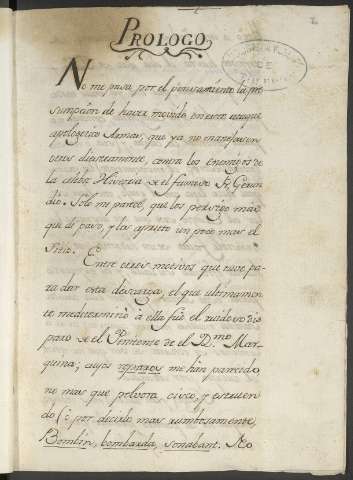 PROLOGO
No me pasa por el pensamiento la pre
sumpcion de haver movido en este ataque
apologetico Armas, que ya no manejassen
otros diestramente, contra los enemigos de
la celebre Historia de el famoso Fr. Gerun
dio. Solo me parece, que los persigo mas
que de paso, y les apreto un poco mas el
sitio. Entre otros motivos que tuve pa
ra dar esta descarga, el que ultimamen
te me determinò à ella fuè el ruidoso dis
paro de el Penitente de el Rmo Mar
quina; cuyos reparos me han parecido,
no mas que polvora, cisco, y estruen
do (ò por decirlo mas rumbosamente,
Bombin, bombarda, sonabant. No